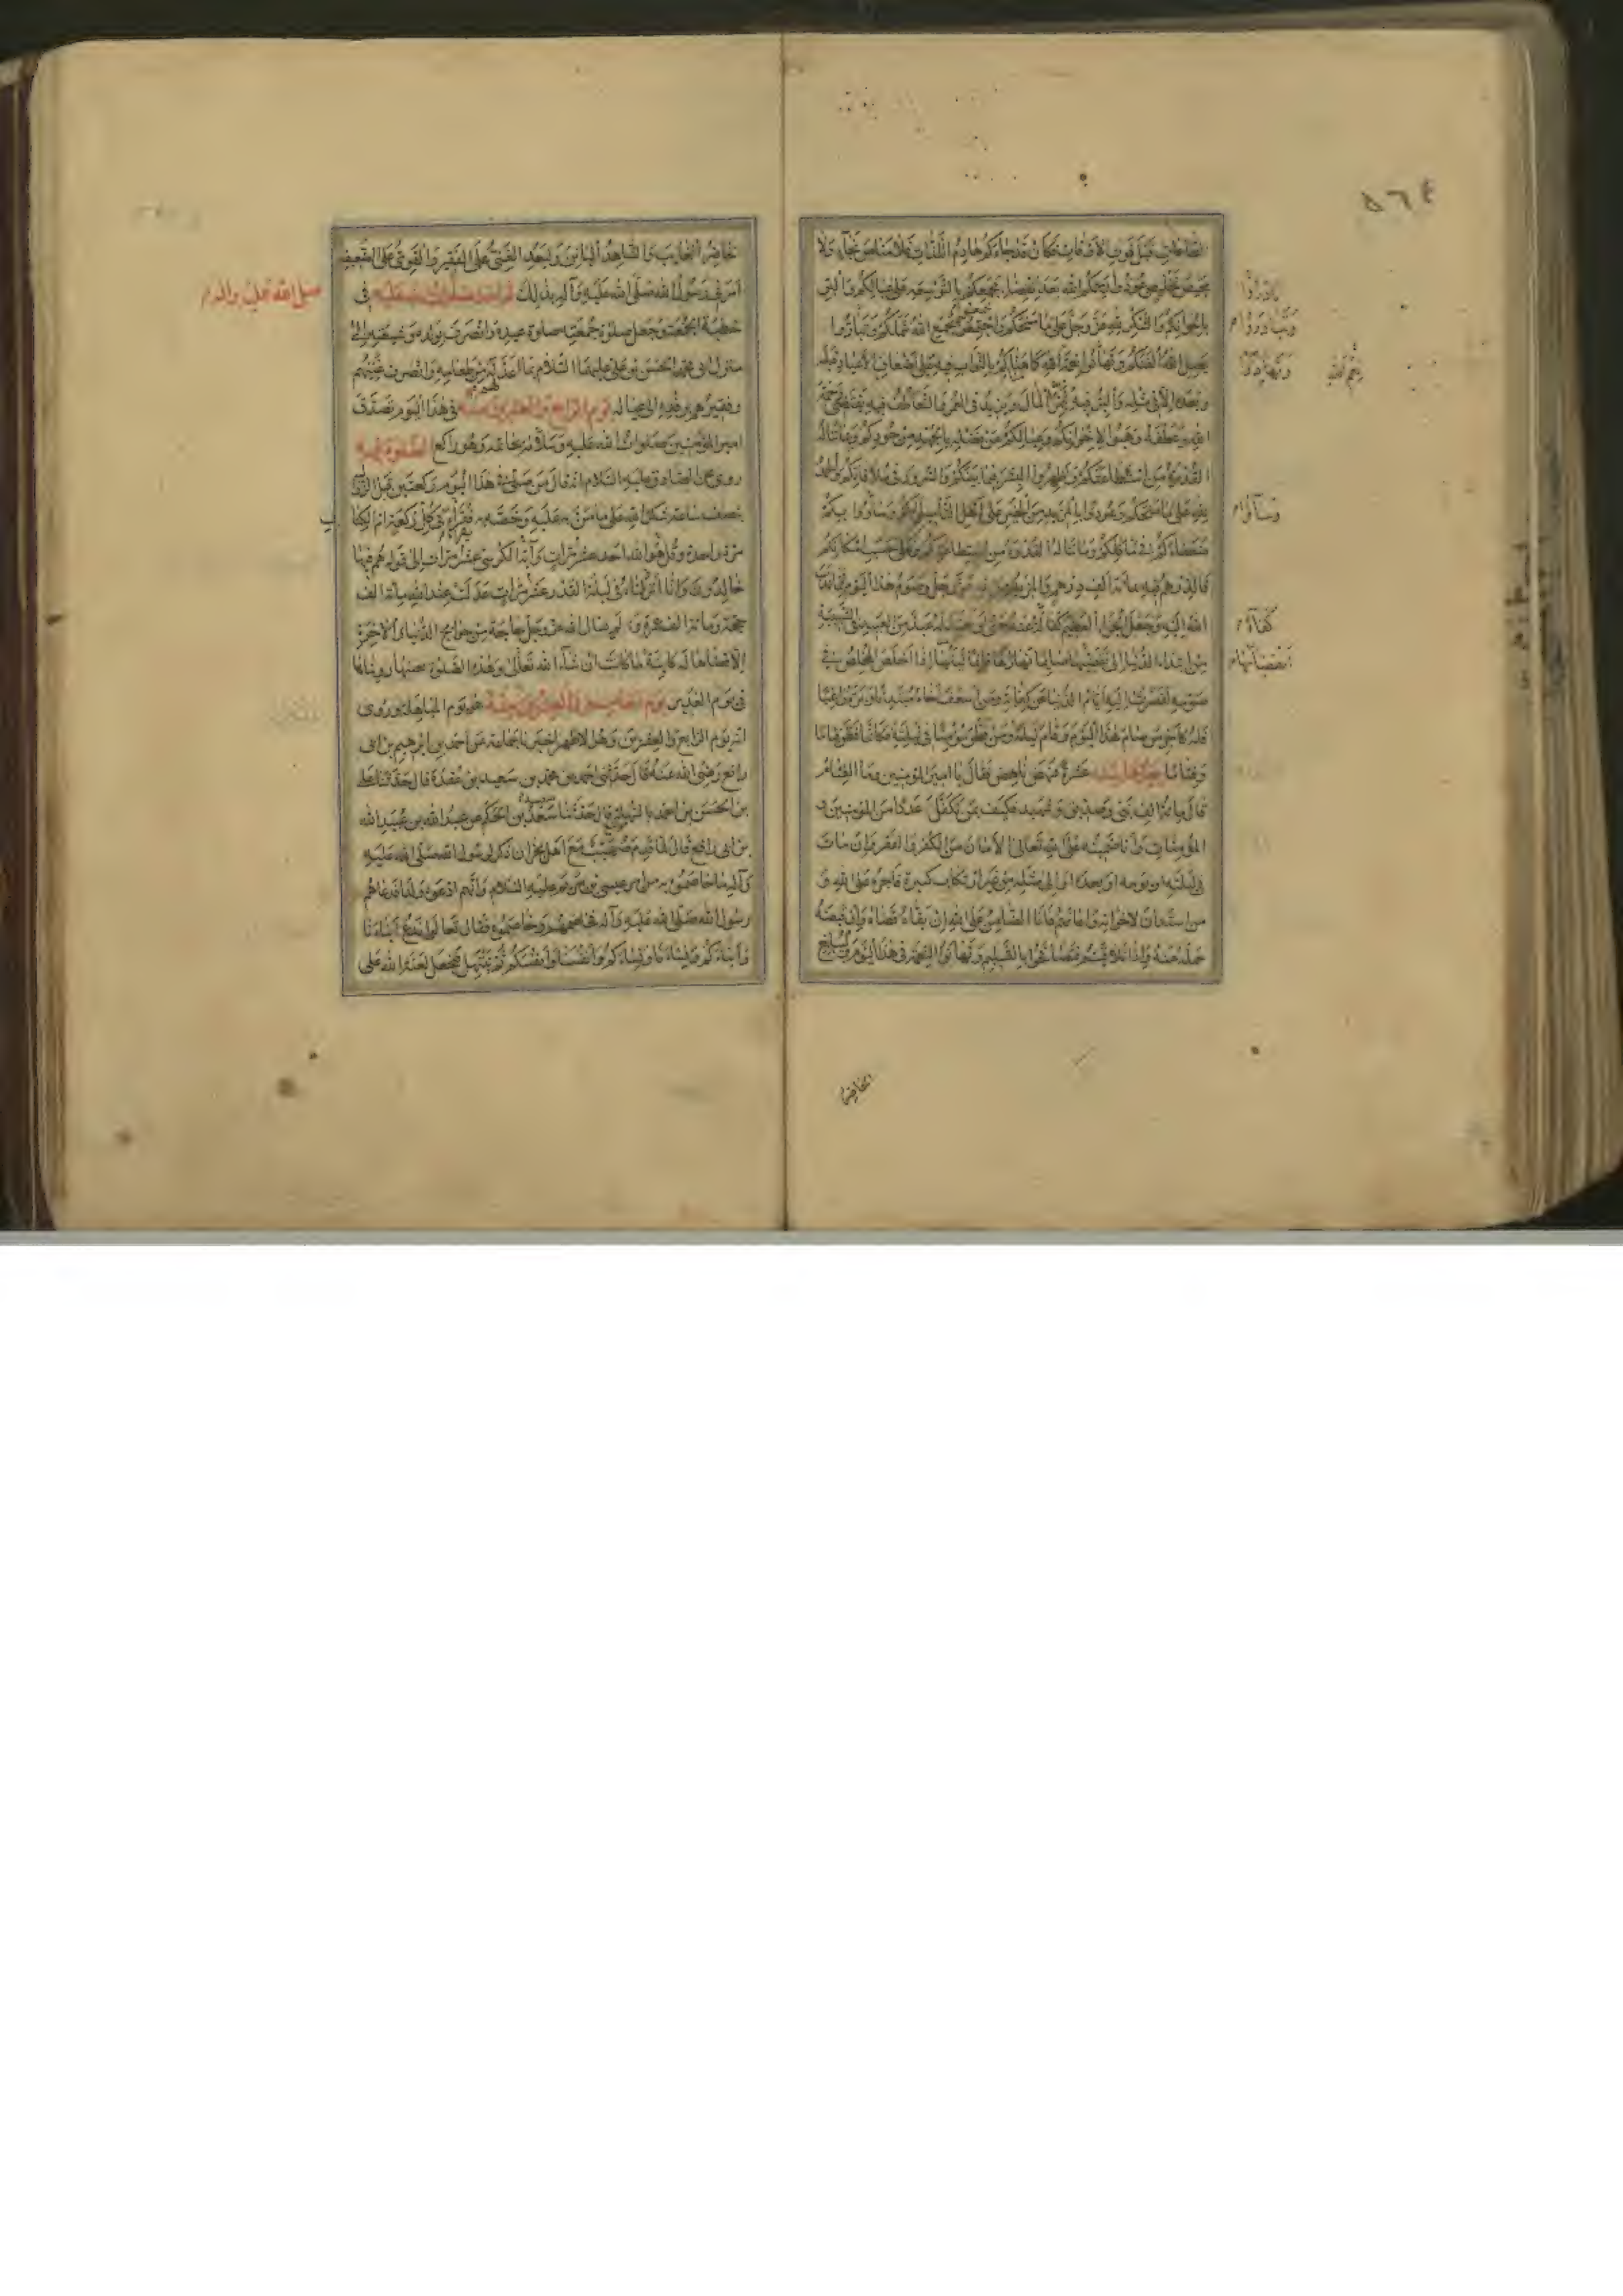 ٥٦٤
الطاعات قبل فوت الاوقات فكان قد جاءكم هادم اللذات فلا مناص نجاء ولا
محيص تخليص عودوا رحمكم الله بعد انقضاء مجمعكم بالتوسعة على عيالكم والبر
باخوانكم والشكر لله عز وجل على ما منحكم واجتمعوا يجمع الله شملكم وتباروا
يصل الله الفتكم وتهانوا نعمة الله كما هناكم بالثواب فيه على اضعاف الاعياد قبله
وبعده الا في مثله والبر فيه يثمر المال ويزيد في العمر والتعاطف فيه يقتضي رحمة
الله وعطفه وهبوا لاخوانكم وعيالكم من فضله بالجهد من جودكم وبما تناله
القدرة من استطاعتكم واظهروا البشر فيما بينكم والسرور في ملاقاتكم والحمد
لله على ما منحكم وعودوا بالمزيد من الخير على اهل التأميل لكم وساووا بكم
ضعفاءكم في مآكلكم وما تناله القدرة من استطاعتكم وعلى حسب امكانكم
فالدرهم فيه بمائة الف درهم والمزيد من الله عز وجل وصوم هذا اليوم مما ندب
الله اليه وجعل الجزاء العظيم كفالة عنه حتى لو تعبد له عبد من العبيد في الشبيبة
من ابتداء الدنيا الى تقضيها صائما نهارها قائما ليلها اذا اخلص المخلص في
صومه لقصرت اليه ايام الدنيا عن كفاية ومن اسعف اخاه مبتدئا وبره راغبا
فله كاجر من صام هذا اليوم وقام ليله ومن فطر مؤمنا في ليلته فكانما فطر فئاما
وفئاما يعدها بيده عشرة فنهض ناهض فقال يا امير المؤمنين وما الفئام
قال مائة الف نبي وصديق وشهيد فكيف بمن تكفل عددا من المؤمنين و
المؤمنات وانا ضمينه على الله تعالى الامان من الكفر والفقر وان مات
في ليلته او يومه او بعده الى مثله من غير ارتكاب كبيرة فاجره على الله و
من استدان لاخوانه واعانهم فانا الضامن على الله ان بقاه قضاه وان قبضه
حمله عنه واذا تلاقيتم فتصافحوا بالتسليم وتهانوا النعمة في هذا اليوم وليبلغ
بادروا
وتبادروا م
وتهادوا
نعم الله
وساووا م
كفاءة م
انقضائها م
الحاضر
الحاضر الغائب والشاهد البائن وليعد الغني على الفقير والقوي على الضعيف
امرني رسول الله صلى الله عليه وآله بذلك ثم اخذ صلوات الله عليه في
خطبة الجمعة وجعل صلوة جمعته صلوة عيده وانصرف بولده وشيعته الى
منزل ابي محمد الحسن بن علي عليهما السلام بما اعد له من طعامه وانصرف غنيهم
وفقيرهم برفده الى عياله يوم الرابع والعشرين منه في هذا اليوم تصدق
امير المؤمنين صلوات الله عليه وسلامه بخاتمه وهو راكع الصلوة فيه
روى عن الصادق عليه السلام انه قال من صلى في هذا اليوم ركعتين قبل الزوال
بنصف ساعة شكرا لله على ما من به عليه وخصه به يقرأ في كل ركعة ام الكتاب
مرة واحدة وقل هو الله احد عشر مرات وآية الكرسي عشر مرات الى قوله هم فيها
خالدون وانا انزلناه في ليلة القدر عشر مرات عدلت عند الله مائة الف
حجة ومائة الف عمرة ولم يسأل الله عز وجل حاجة من حوائج الدنيا والآخرة
الا قضاها له كائنة ما كانت ان شاء الله تعالى وهذه الصلوة بعينها رويناها
في يوم الغدير يوم الخامس والعشرين منه هو يوم المباهلة وروى
انه يوم الرابع والعشرين وهو الاظهر اخبرنا جماعة عن احمد بن ابرهيم بن ابي
رافع رضي الله عنه قال حدثني احمد بن محمد بن سعيد بن عقدة قال حدثنا علي
بن الحسن بن احمد بالنهدي قال حدثنا سعد بن الحكم عن عبد الله بن عبيد الله
بن ابي رافع قال لما قدم صهيب مع اهل نجران ذكر لرسول الله صلى الله عليه
وآله ما خاصموه به من امر عيسى بن مريم عليه السلام وانهم ادعوه ولدا فدعاهم
رسول الله صلى الله عليه وآله فخاصمهم وخاصموه فقال تعالوا ندع ابناءنا
وابناءكم ونساءنا ونساءكم وانفسنا وانفسكم ثم نبتهل فنجعل لعنة الله على
صلى الله على وآله م